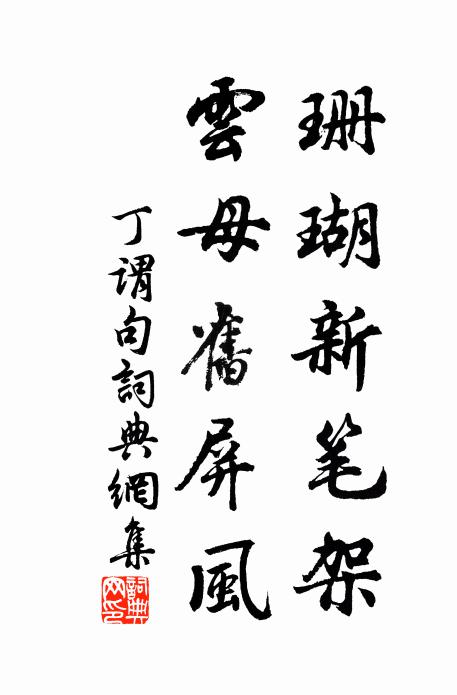 珊瑚新笔架
雲母舊屏風
丁謂句詞典網集
詞典网印